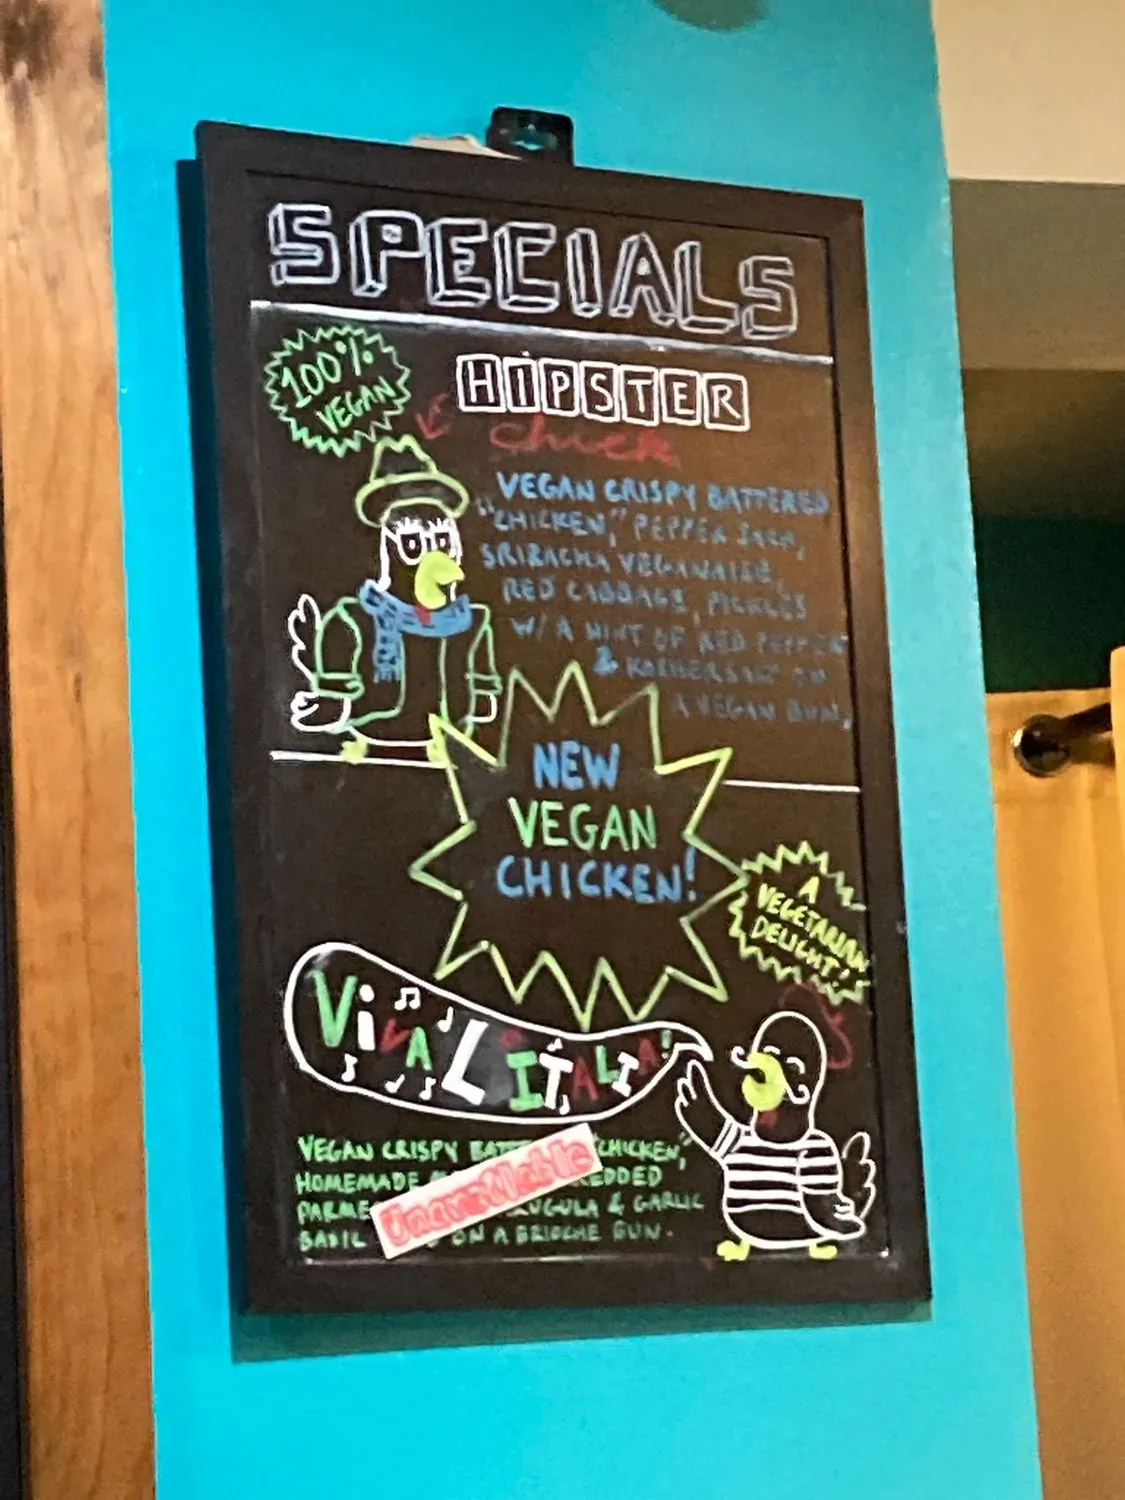 SPECIALS
100%
VEGAN
HIPSTER
chick
VEGAN CRISPY BATTERED
"CHICKEN," PEPPER JACK,
SRIRACHA VEGANAISE,
RED CABBAGE, PICKLES
W/ A HINT OF RED PEPPER
& KOSHER SALT ON
A VEGAN BUN.
NEW
VEGAN
CHICKEN!
A
VEGETARIAN
DELIGHT!
ViVA L'ITALIA!
VEGAN CRISPY "CHICKEN,"
HOMEMADE
Unavailable
& GARLIC
BASIL ON A BRIOCHE BUN.